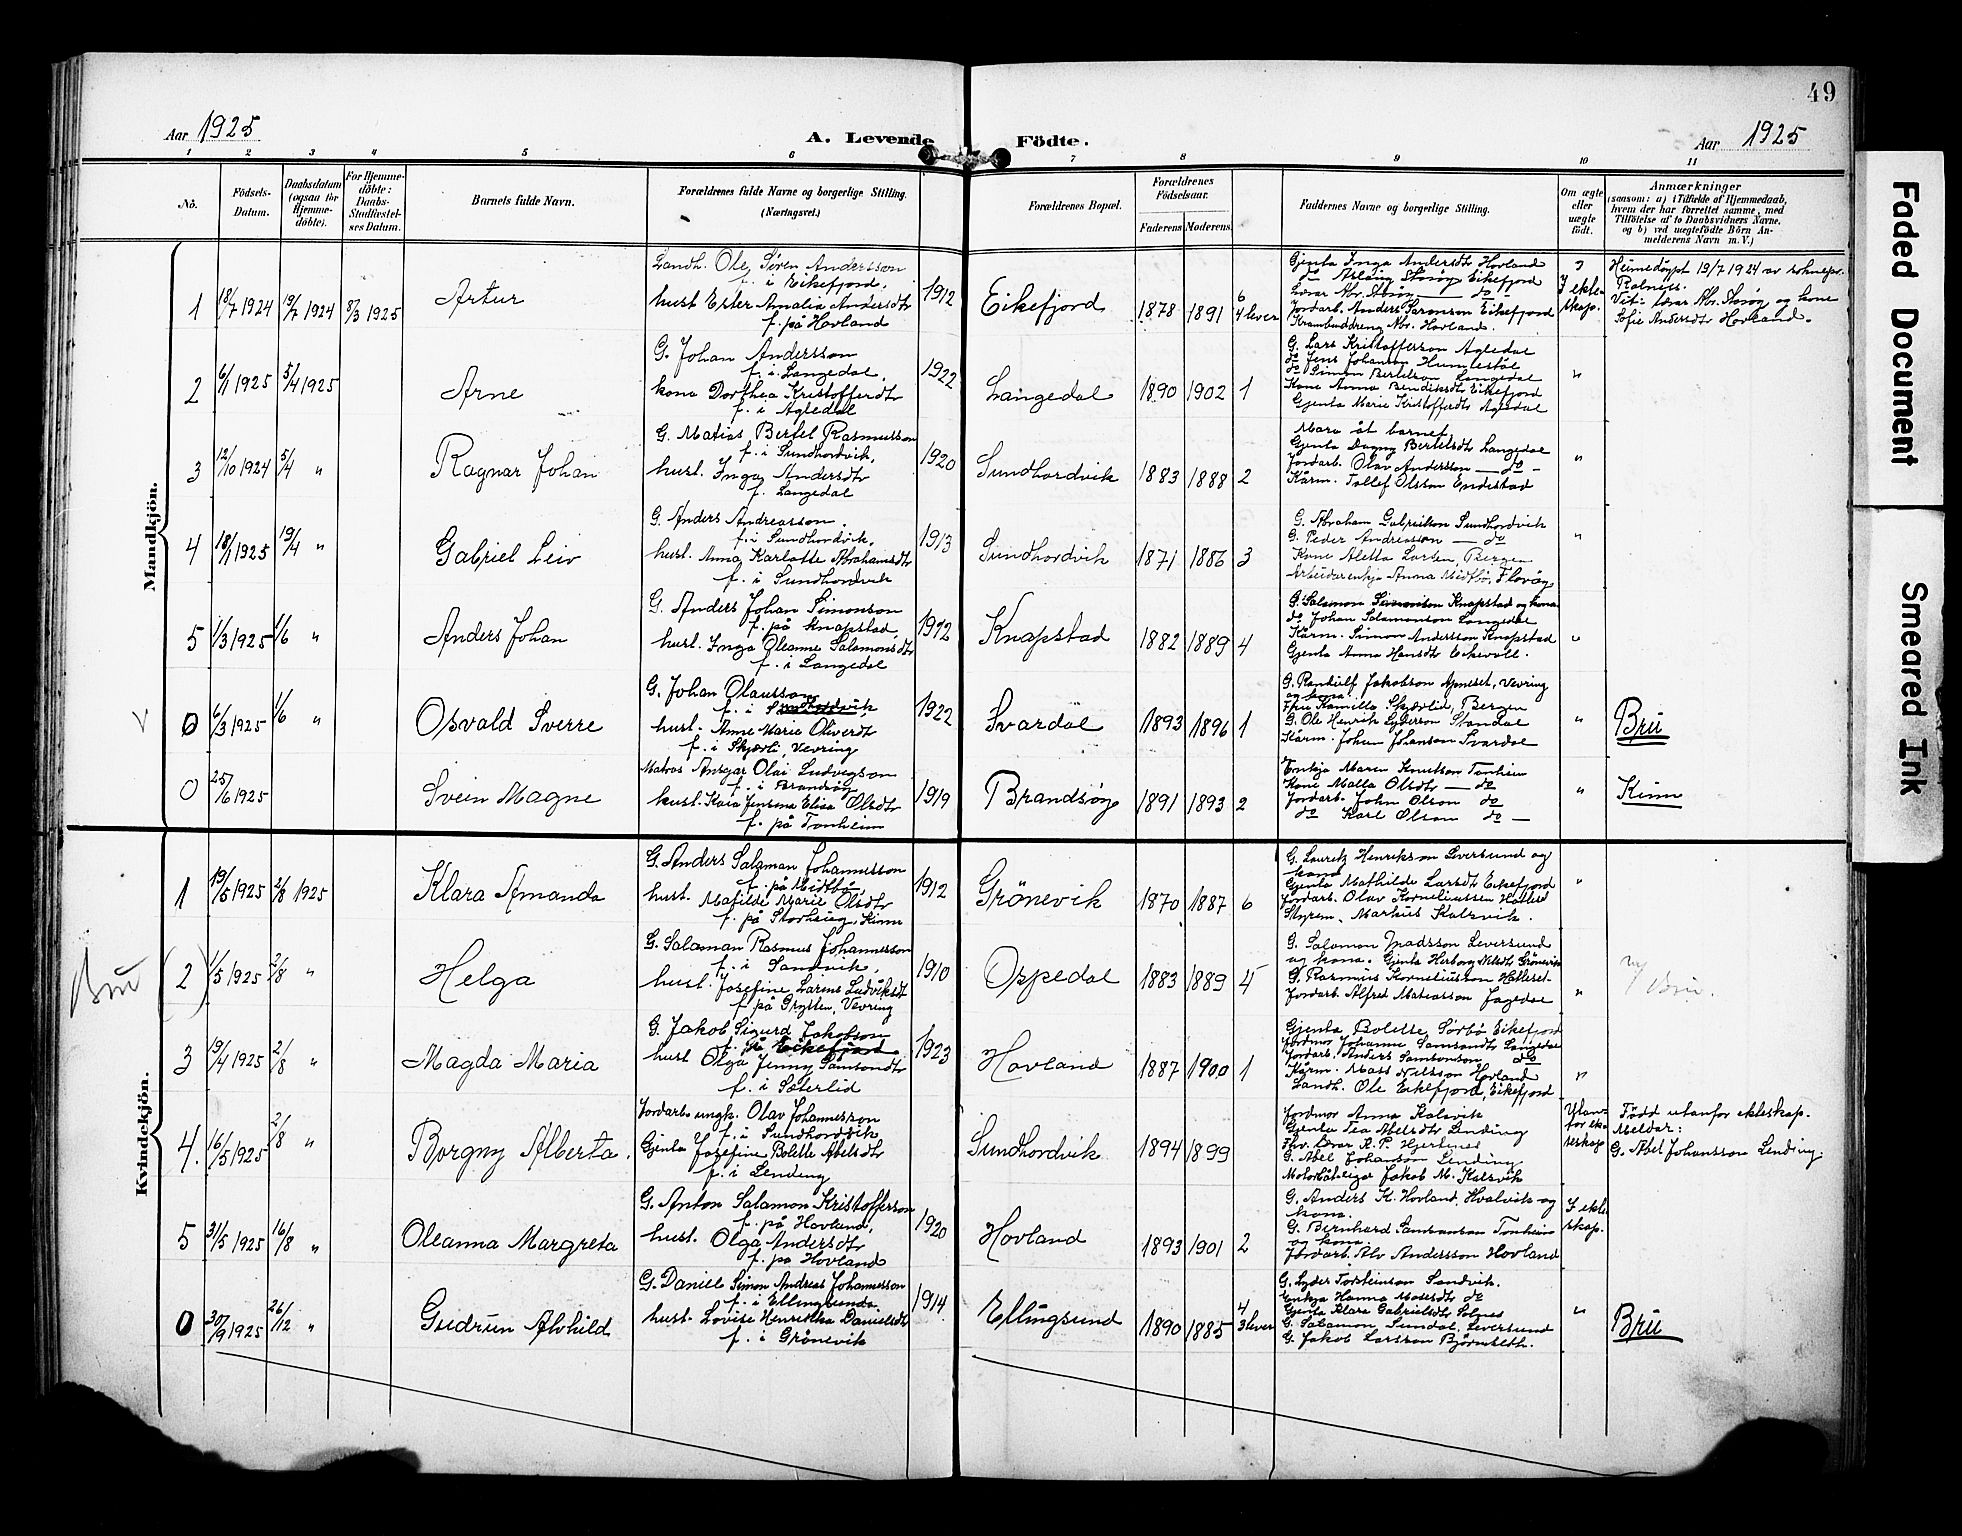 49
Aar 1925
A. Levende Födte.
Aar 1925
1 2 3 4 5 6 7 8 9 10 11
No.
Födsels-Datum.
Daabsdatum (ogsaa for Hjemme-döbte).
For Hjemme-döbte: Daabs-Stadfæstel-ses Datum.
Barnets fulde Navn.
Forældrenes fulde Navne og borgerlige Stilling. (Næringsvei.)
Forældrenes Bopæl.
Forældrenes Födselsaar.
Faderens Moderens
Faddernes Navne og borgerlige Stilling.
Om ægte eller uægte födt.
Anmærkninger
(saasom: a) i Tilfælde af Hjemmedaab, hvem der har forrettet samme, med Tilföielse af to Daabsvidners Navne, og b) ved uegtefödte Börn An-melderens Navn m. V.)
Mandkjön.
1 18/7 1924 19/7 1924 8/3 1925 Artur
Landh. Ole Søren Andersson
f. i Eikefjord.
hust Ester Amalia Andersdtr
f. på Hovland
1912 Eikefjord 1878 1891 6 4 lever
Gjenta Inga Andersdtr Hovland
do Aslaug Storøy Eikefjord
Lærar Abr. Storøy — do —
Jordarb. Anders Sørenson Eikefjord
Krambuddreng Abr. Hovland.
I ekte-skap.
Heimedøypt 19/7 1924 av
Vit: Lærar Abr. Storøy og kone
Sofie Andersdtr Hovland.
2 6/1 1925 5/4 1925 Arne
G. Johan Andersson
f. i Langedal.
kona Dorthea Kristofferdtr
f. i Agledal
1922 Langedal 1890 1902 1
G. Lars Kristofferson Agledal
do Jens Johanson Humlestøl
do Simon Bertelson Langedal
Kone Anna Bendiksdtr Eikefjord
Gjenta Marie Kristofferdtr Agledal
"
3 12/10 1924 5/4 " Ragnar Johan
G. Matias Bertel Rasmusson
f. i Sundhordvik,
hust. Inga Andersdtr
f. Langedal
1920 Sundhordvik 1883 1888 2
Mora åt barnet
Gjenta Dagny Bertelsdtr Langedal
Jordarb. Olav Andersson — do —
Kårm. Tollef Olsson Endestad
"
4 18/1 1925 19/4 " Gabriel Leiv
G. Anders Andreasson.
f. i Sundhordvik,
hust. Anna Karlotte Abrahamsdtr
f. i Sundhordvik
1913 Sundhordvik 1871 1886 3
G. Abraham Gabrielson Sundhordvik
G. Peder Andreasson — do
Kone Aletta Larsen, Bergen
Arbeidarenkja Anna Midtbø, Florøy
"
5 1/3 1925 1/6 " Anders Johan
G. Anders Johan Simonson
f. på Knapstad,
hust. Inga Oleanne Salamonsdtr
f. i Langedal
1912 Knapstad 1882 1889 4
G. Salamon Simonson Knapstad og kona
do Johan Salamonson Langedal
Kårm. Simon Andersson Knapstad
Gjenta Anna Hansdtr Eikevoll.
"
0 6/3 1925 1/6 " Osvald Sverre
G. Johan Olausson
f. i
hust. Anne Marie Oliverdtr
f. i Skjærli, Vevring
1922 Svardal 1893 1896 1
G. Randulf Jakobson Apneset, Vevring
og kona.
Fru Kamilla Skjærlid, Bergen
G. Ole Henrik Lyderson Standal
Kårm. Johan Johanson Svardal
" Bru
0 25/6 1925 Svein Magne
Matros Ansgar Olai Ludvigson
f. i Brandsøy
hust. Kaia Jensena Elisa Olsdtr
f. på Tonheim
1919 Brandsøy 1891 1893 2
Enkja Maren Knutson Tonheim
Kone Malla Olsdtr — do
Jordarb. John Olson do
do Karl Olson do —
" Kinn
Kvindekjön.
1 19/5 1925 2/8 1925 Klara Amanda
G. Anders Salamon Johannesson
f. på Midtbø,
hust. Matilde Marie Olsdtr
f. på Storhaug, Kinn
1912 Grönevik 1870 1887 6
G. Lauritz Henrikson Leversund og
kona
Gjenta Mathilde Larsdt Eikefjord
Jordarb. Olav Korneliussen Hatleset
Styrem. Markus Kalsvik.
"
Bru
(2) 1/5 1925 2/8 " Helga
G. Salaman Rasmus Johannesson
f. i Sandvik,
hust. Josefine Larine Ludviksdt
f. på Grytten, Vevring
1910 Oppedal 1883 1889 4
G. Salomon Madsson Leversund
og kona. Gjenta Herborg Nelsdt Grönevik
G. Rasmus Korneliusson Hatleset
Jordarb. Alfred Matiasson Fagedal
" Bru.
3 19/4 1925 2/8 " Magda Maria
G. Jakob Sigurd Jakobson
f. på Eikefjord
hust Olga Jenny Samsondtr
f. i Sæterlid
1923 Hovland 1887 1900 1
Gjenta Bolette Sørbö Eikefjord
Jordmor Johanne Samsondtr Langedal
Jordarb. Anders Samsonson do
Kårm. Mass Nilsson Hovland
Landh. Ole Eikefjord, Eikefjord
"
4. 16/5 1925 2/8 " Borgny Alberta.
Jordarb. ungk. Olav Johannesson
f. i Sundhordvik
Gjenta Josefine Bolette Abelsdtr
f. i Lending
Sundhordvik 1894 1899
Jordmor Anna Kalsvik
Gjenta Tea Abelsdtr Lending
Fhv. lærar R. P. Hjertenes
G. Abel Johanson Lending
Motorbåteigar Jakob M. Kalsvik
Utan-for ek-teskap
Född utanfor ekteskap.
Meldar:
G. Abel Johansson Lending.
5 31/5 1925 16/8 " Oleanna Margreta
G. Anton Salamon Kristofferson
f. på Hovland,
hust. Olga Andersdtr
f. på Hovland
1920 Hovland 1893 1901 2
G. Anders K. Hovland, Hvalvik og
kona.
G. Bernhard Samsonson Tonheim
og kona
Jordarb. Alv Andersson Hovland
I ekte-skap.
0 30/9 1925 26/12 " Gudrun Alvhild
G. Daniel Simon Andreas Johannesson
f. i Ellingsunde.
hust. Lovise Henrikka Danielsdt
f. i Grönevik
1914 Ellingsund 1890 1885 4 3 lever
G. Lyder Torsteinson Sandvik.
Enkja Hanna Mosesdtr do
Gjenta Klara Gabrielsdtr Solnes
G. Salamon Sundal, Leversund
G. Jakob Larsson Björnset.
" Bru
Faded Document
Smeared Ink